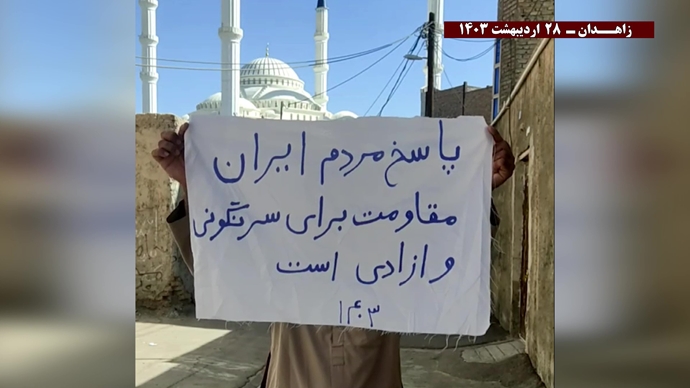 زاهــدان ــ ۲۸ اردیبهشت ۱۴۰۳
پاسخ مردم ایران
مقاومت برای سرنگونی
و ازادی است
۱۴۰۳